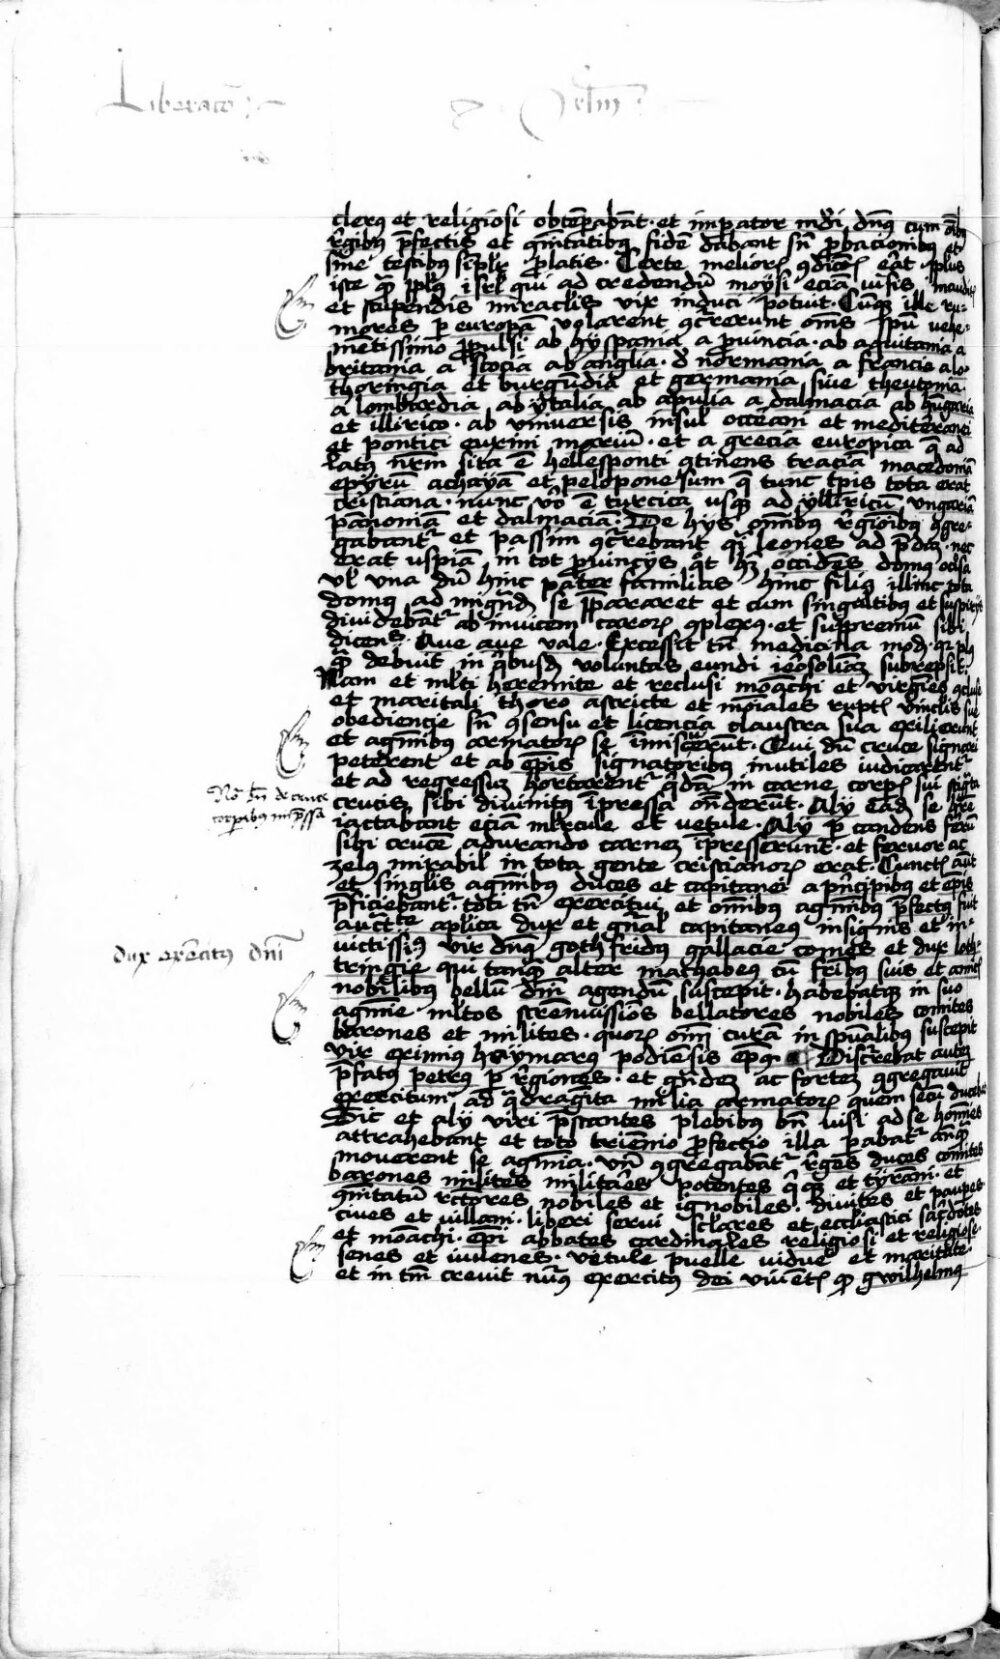 Liberatō
Jrlm̄
clerus et religiosi obtēperabāt · et imp̄ator mūdi dn̄s cum oī̄bꝫ
r̄gibꝫ p̄fectis et cōītatibꝫ fidē dabant sn̄ ꝓbacionibꝫ et
sine testibꝫ simpl̄r ꝓlatis · Certe melioris ꝯdicōis erāt pl̄us
iste qꝫ ppl̄us isrl̄ qui ad credendū moysi eciā visis
et stupendis miraclis vix induci potuit · Cūqꝫ ille ru-
mores ꝑ europā volarent ꝯcurrerunt om̄s spū vehe-
mētissimo ꝓpulsi ab hyspania a ꝓuincia · ab aquitania a
britania a scocia ab anglia · a normania a francia a lo-
thoringia et burgūdia et germania siue theutonia
a lombardia ab ytalia ab apulia a dalmacia ab hūgaria
et illirico · ab vniuersis insul̄ occeani et mediterranei
et pontici euxini mariū · et a grecia europica q̄ ad
latus nr̄m sita ē hellesponti ꝯtinens traciā macedoniā
epyrū achayā et peloponesum q̄ tunc tp̄is tota erat
cristiana · nunc vo ē turcica usqꝫ ad yllīricū ungariā
pānoniā et dalmacia · De hys om̄ibꝫ r̄gionibꝫ ꝯgre-
gabantr et passim ꝯcurrebant qͥ leones ad p̄dā · nec
erat uspiā in tot ꝓuincijs occidēs domꝰ ociosa
vl̄ vna dū hinc pater familias hinc filiꝰ illinc tota
domꝰ ad migrādū se p̄pararet et cum singultibꝫ et suspirijs
diuidebātr ab inuicem caroꝝ ꝯplexꝰ · et supremū sibi
dicens · Aue aue vale · Excessit tn̄ medicina modū · qꝛ plꝰ
qꝫ debuit in qͥbusdā voluntas eundi ierosolimā subrepsit
Nam et ml̄ti heremite et reclusi monachi et virgines
et maritali thoro astricte et moniales ruptis vinclis sue
obediencie sn̄ ꝯsensu et licencia claustra sua exilierunt
et agminibꝫ armatoꝝ se īmiscuerūt · Qui dū cruce signari
peterent et ab ep̄is signatoribꝫ inutiles iudicarentr
et ad regressum hortarentr qͥdā in carne corpis sui stigmata
crucis sibi diuinitꝰ īpressa on̄derūt · Aly eadē se
iactabant eciā ml̄ercule et vetule · Aly ꝑ candens ferrū
sibi crucē adurando carnem īpresserunt · et feruor ac
zelus mirabil̄ in tota gente cristianoꝝ erat · Cunctis aūt
et singlis agminibꝫ duces et capitanei a p̄ncipibꝫ et ep̄is
p̄ficiebantr · toti tn̄ exercitui et omnibꝫ agminibꝫ p̄fectꝰ fuit
auctte aplica dux et gn̄al capitaneꝰ insignis et in-
uictissimꝰ vir dn̄s gothfridus gallacie comes et dux loth-
tringie qui tanqꝫ alter machabeꝰ cū fribꝫ suis et
nobilibꝫ bellū dn̄i agendū suscepit · habebatqꝫ in suo
agmine ml̄tos strēnuissimos bellatores nobiles comites
barones et milites · quoꝝ oīm curā in spūalibꝫ suscepit
vir eximiꝰ haymarus podiēsis ep̄us · Discurrebat autem
p̄fatꝰ petrus ꝑ r̄giones · et grādem ac fortem ꝯgregauit
exercitum ad qͣdragīta milia armatoꝝ quem secū
Sic et aly viri p̄stantes plebibꝫ bn̄ visi ad se homines
attrahebant et toto triēnio ꝓfectio illa parabatr anteqꝫ
mouerent se agmina · vn̄ ꝯgregabantr r̄ges duces comites
barones milites militāes potentes qͥqꝫ et tyranni · et
cōītatū rctores nobiles et ignobiles · diuites et pauperes
ciues et villani · liberi serui sclares et eccliastici sacerdotes
et monachi · ep̄i abbates cardinales religiosi et religiose
senes et iuuenes · vetule puelle vidue et maritate
et in tm̄ creuit nūꝰ exercitꝰ dei viuētis qꝫ gwilhelmꝰ
No tn̄ de cruce
corporibꝫ impressa
dux exercitꝰ dn̄i